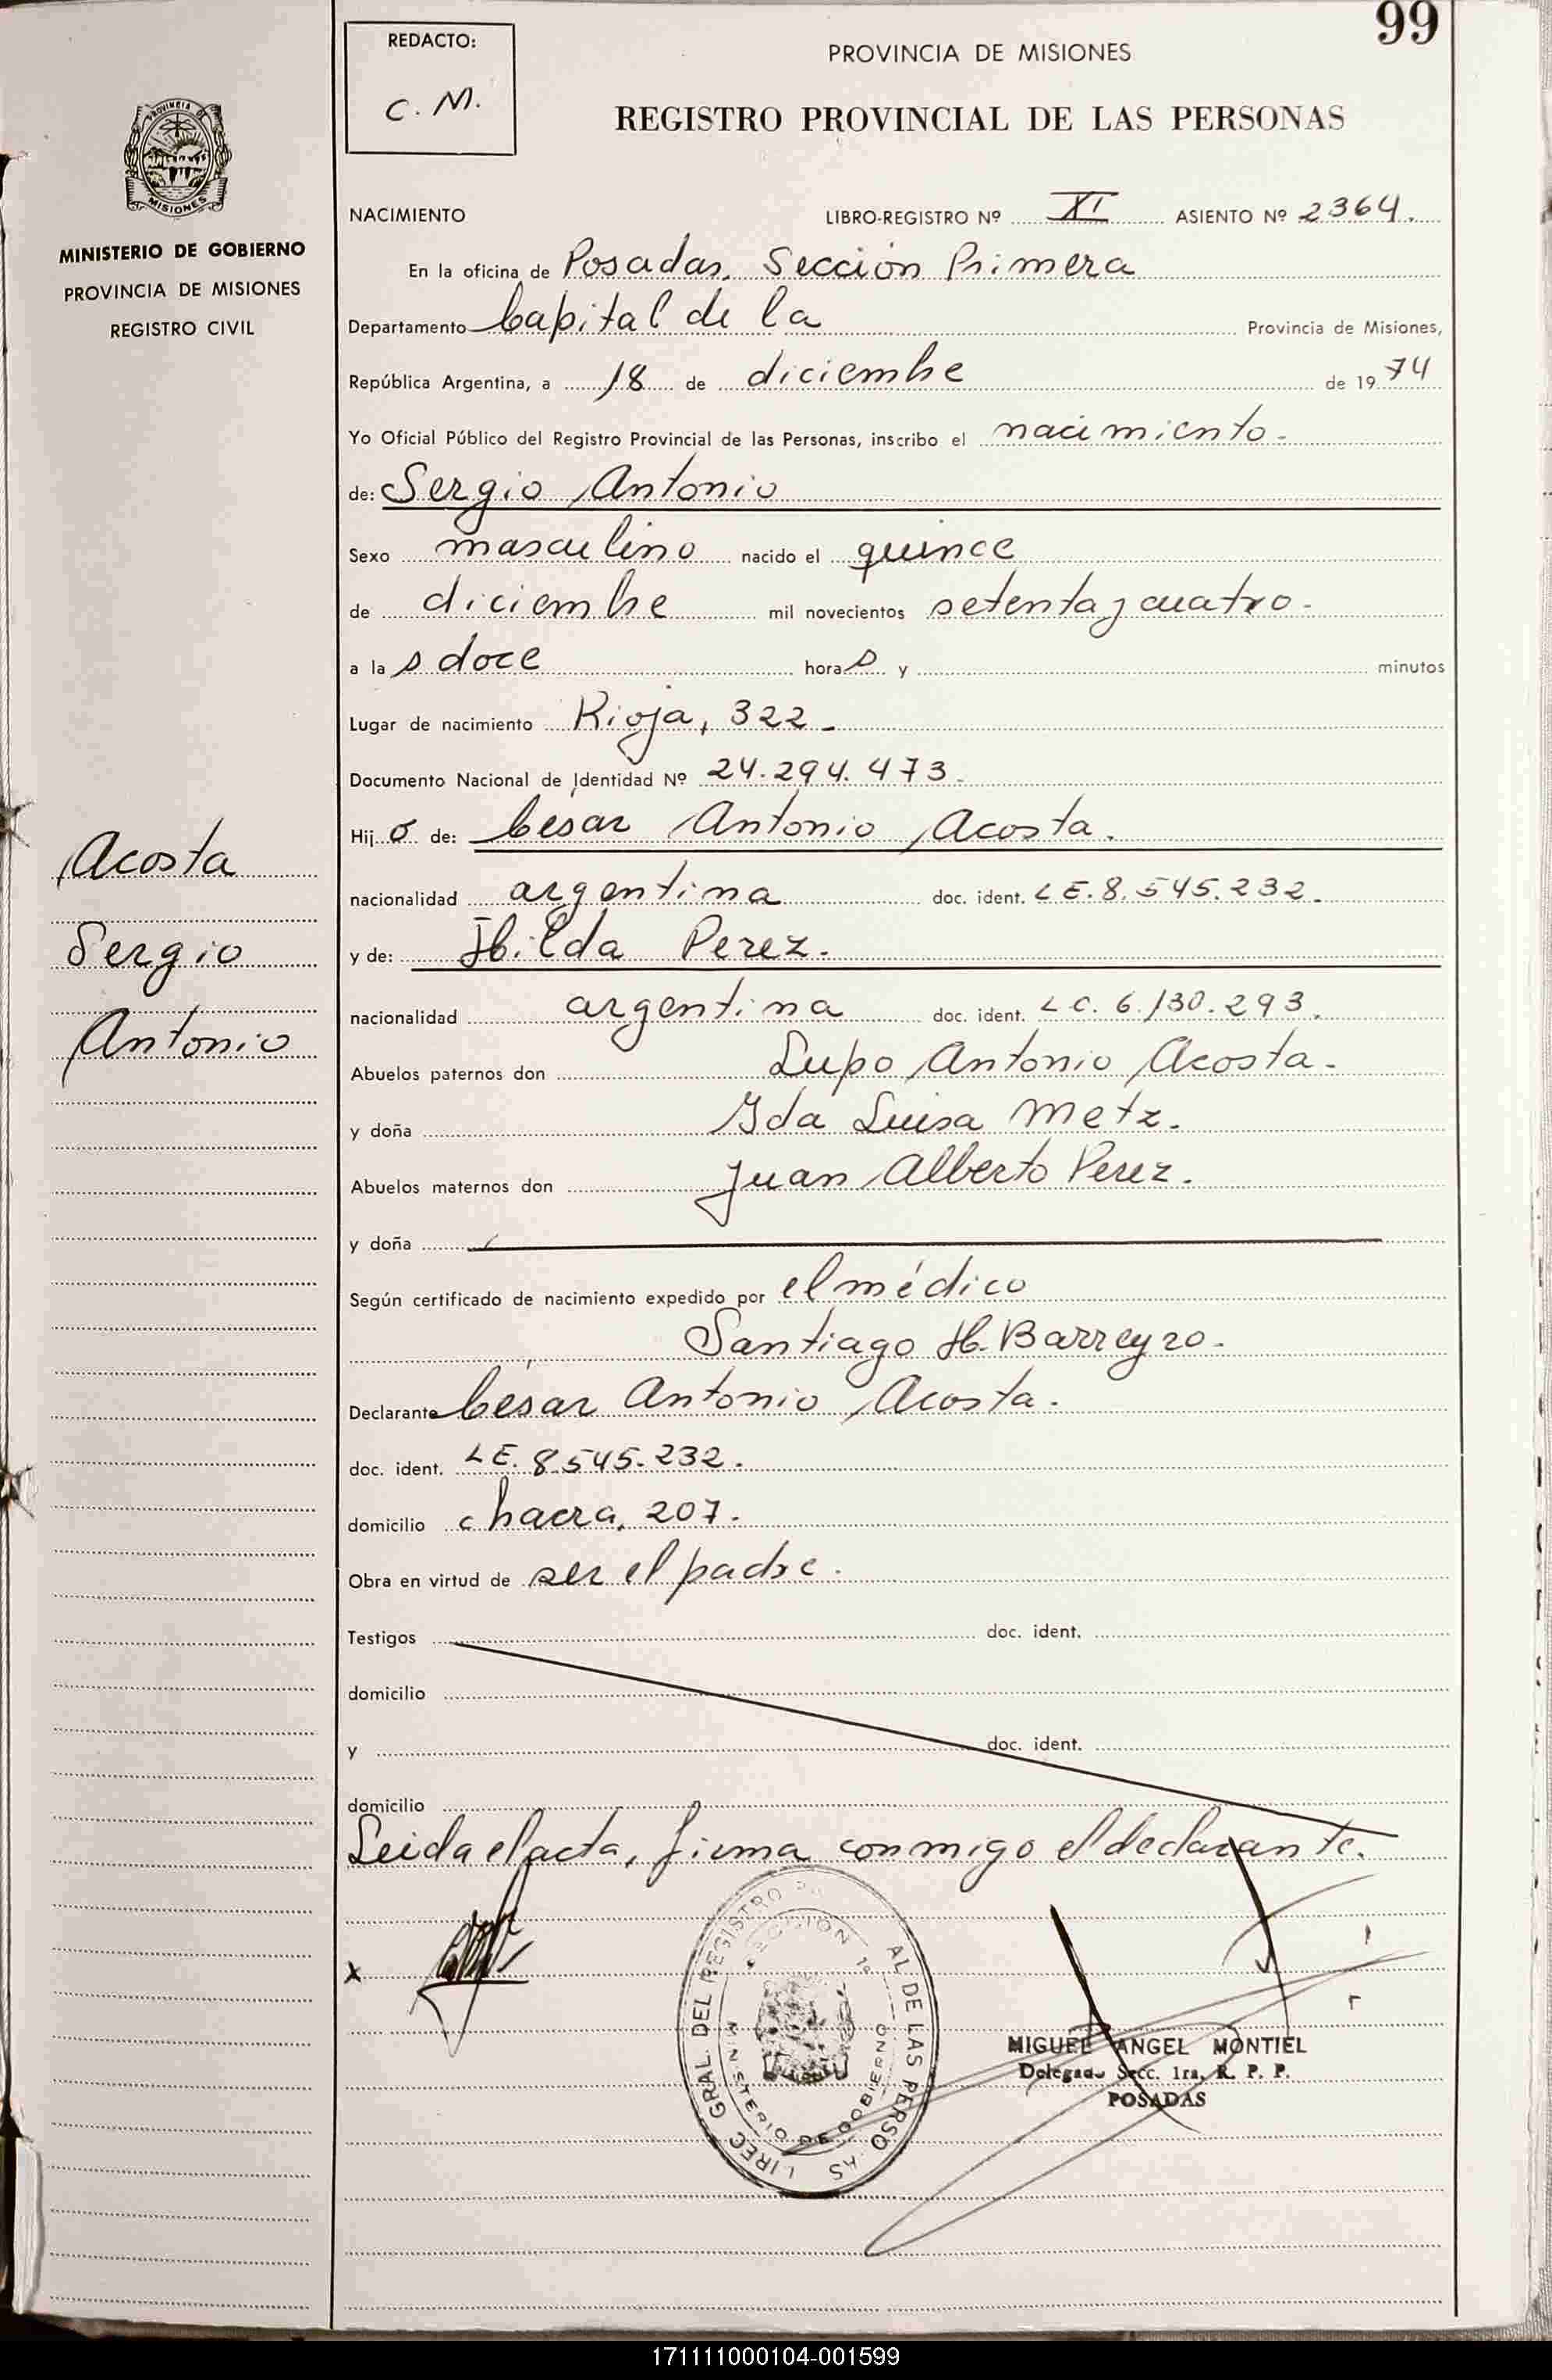 99
REDACTO:
C. M.
PROVINCIA DE MISIONES
REGISTRO PROVINCIAL DE LAS PERSONAS
PROVINCIA DE
MISIONES
MINISTERIO DE GOBIERNO
PROVINCIA DE MISIONES
REGISTRO CIVIL
NACIMIENTO LIBRO-REGISTRO Nº XI ASIENTO Nº 2364.
En la oficina de Posadas, Sección Primera
Departamento Capital de la Provincia de Misiones,
República Argentina, a 18 de diciembre de 1974
Yo Oficial Público del Registro Provincial de las Personas, inscribo el nacimiento.
de: Sergio Antonio
Sexo masculino nacido el quince
de diciembre mil novecientos setenta y cuatro.
a la s doce horas y minutos
Lugar de nacimiento Rioja, 322.
Documento Nacional de Identidad Nº 24.294.473.
Hijo de: César Antonio Acosta.
nacionalidad argentina doc. ident. LE. 8.545.232.
y de: Hilda Perez.
nacionalidad argentina doc. ident. LC. 6.130.293.
Abuelos paternos don Lupo Antonio Acosta.
y doña Ida Luisa Metz.
Abuelos maternos don Juan Alberto Perez.
y doña
Según certificado de nacimiento expedido por el médico
Santiago H. Barreyro.
Declarante César Antonio Acosta.
doc. ident. LE. 8.545.232.
domicilio chacra, 207.
Obra en virtud de ser el padre.
Testigos doc. ident.
domicilio
y doc. ident.
domicilio
Leida el acta, firma conmigo el declarante.
Acosta
Sergio
Antonio
x
DIREC. GRAL. DEL REGISTRO P AL DE LAS PERSO AS
SECCION 1ª
MINISTERIO DE GOBIERNO
MIGUEL ANGEL MONTIEL
Delegado Secc. 1ra. R. P. P.
POSADAS
171111000104-001599